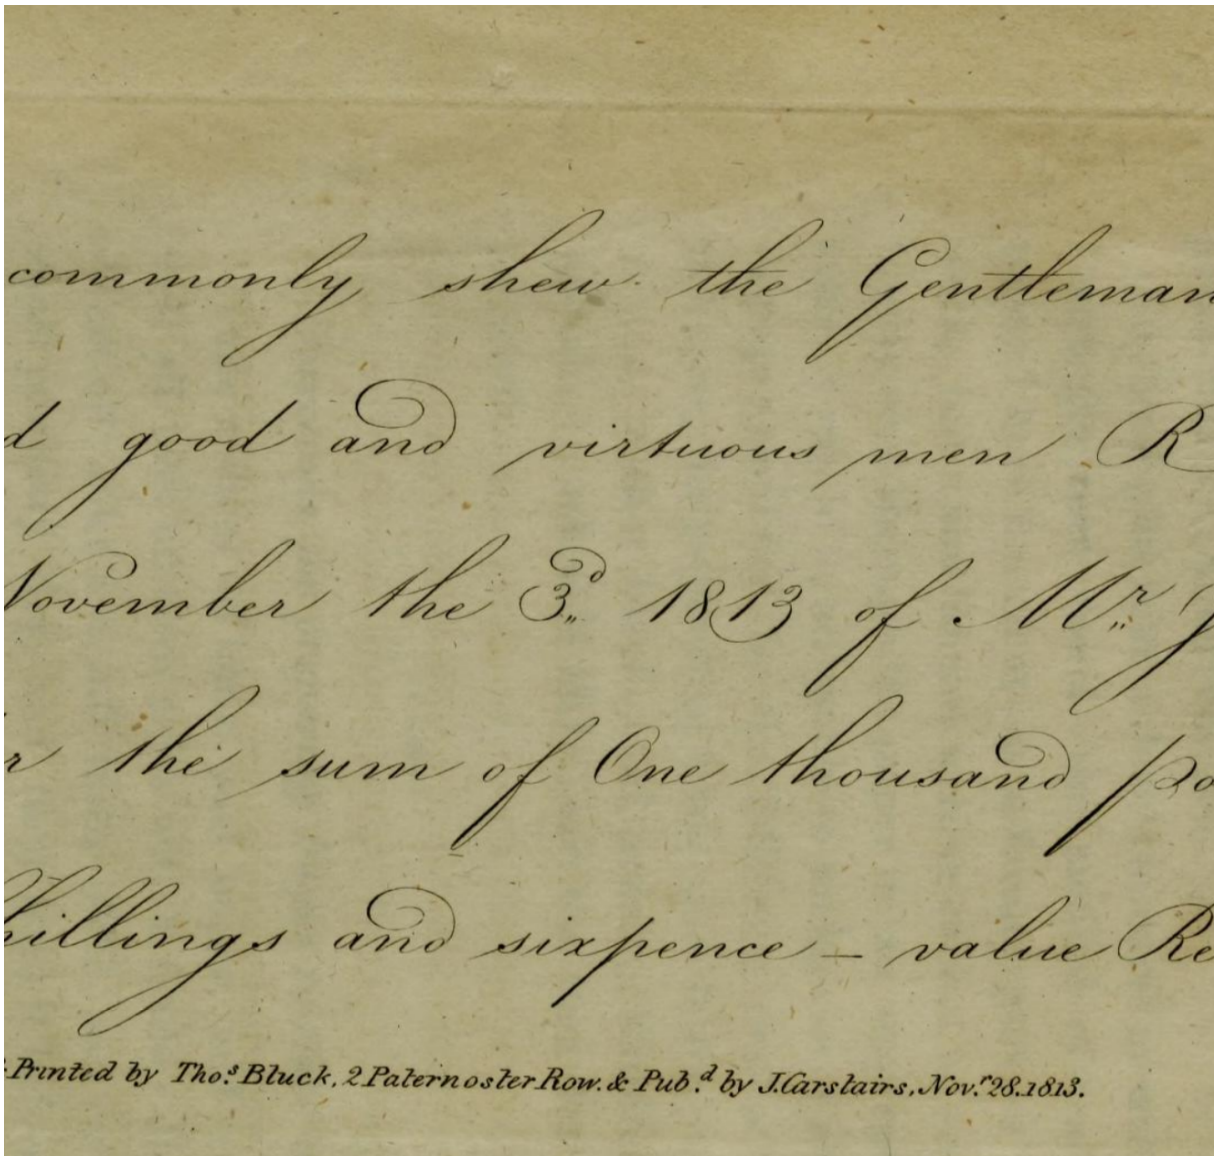 commonly shew the Gentleman
d good and virtuous men R
November the 3.d 1813 of Mr. J
r the sum of One thousand po
hillings and sixpence – value Re
Printed by Tho.s Bluck, 2 Paternoster Row. & Pub.d by J. Carstairs, Nov.r 28. 1813.